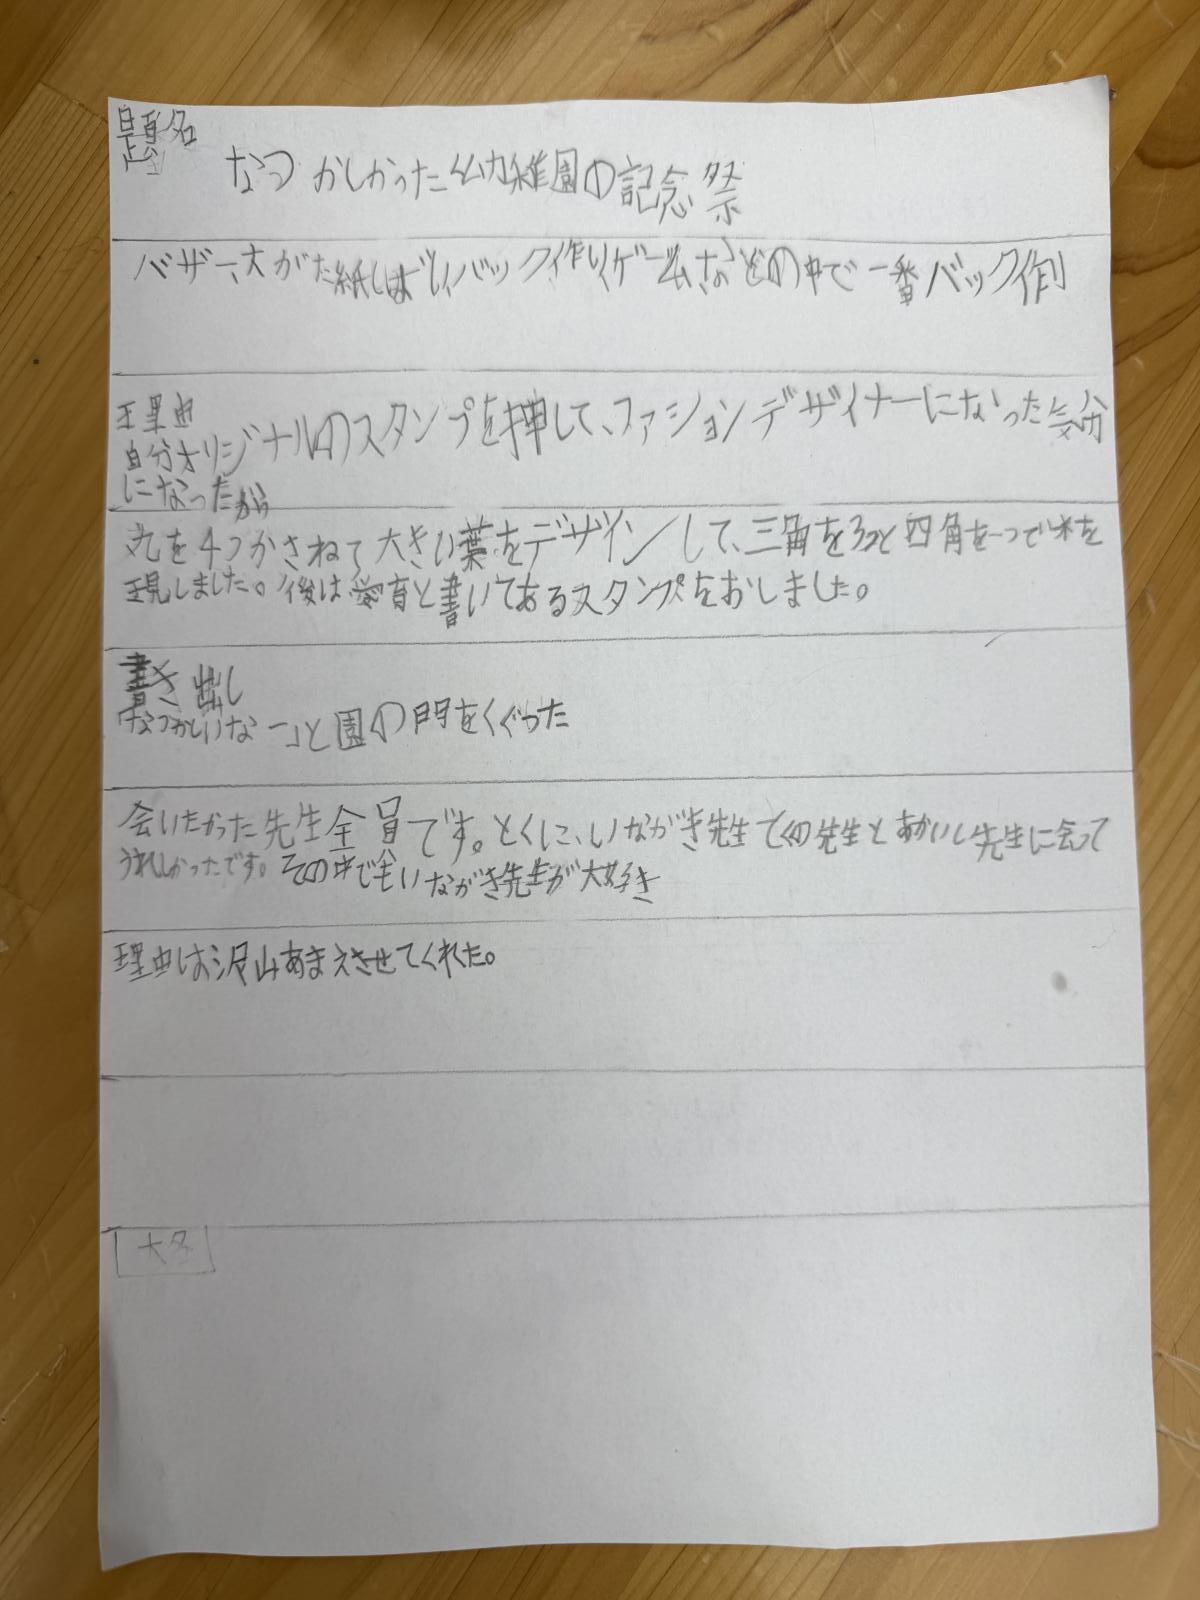 題名
なつかしかった幼稚園の記念祭
バザー、大がた紙しばい、バック作り、ゲームなどの中で一番バック作り
理由
自分オリジナルのスタンプを押して、ファションデザイナーになった気分
になったから
丸を4つかさねて大きい葉をデザインして、三角を3つと四角を一つで木を
現しました。後は、愛育と書いてあるスタンプをおしました。
書き出し
なつかしいな 」と園の門をくぐった
会いたかった先生全員です。とくに、いながき先生 先生とあかいし先生に会って
うれしかったです。その中で いながき先生が大好き
理由は沢山あまえさせてくれた。